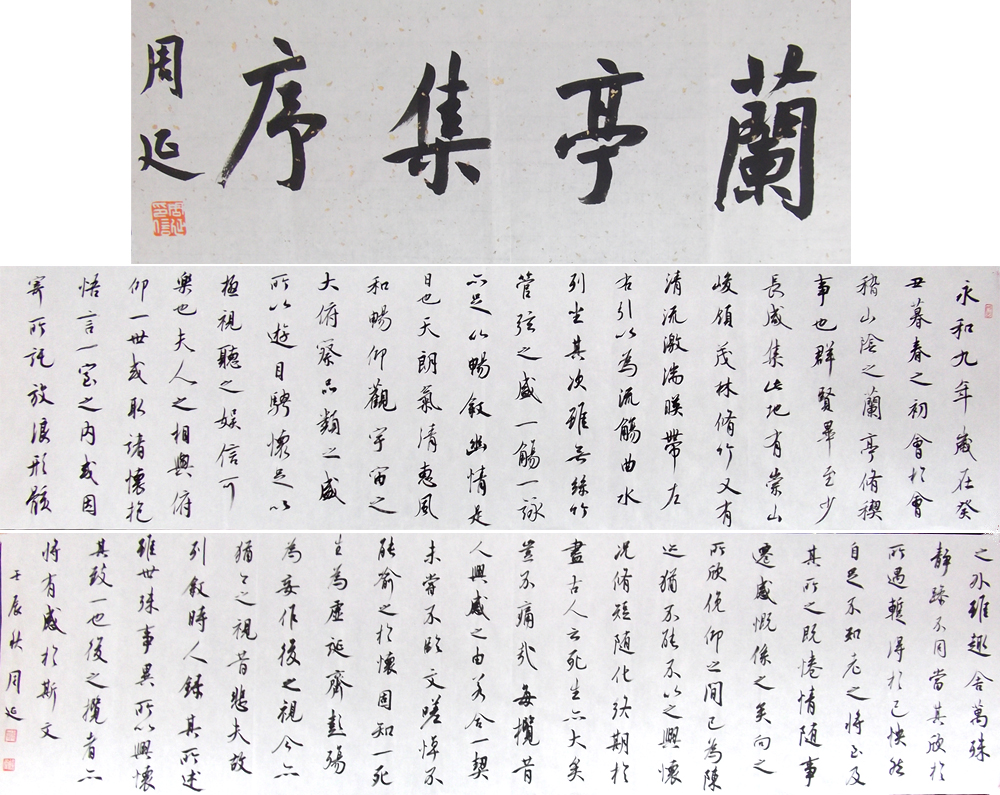 蘭亭集序
周延
永和九年歲在癸
丑暮春之初會於會
稽山陰之蘭亭脩稧
事也群賢畢至少
長咸集此地有崇山
峻領茂林脩竹又有
清流激湍暎帶左
右引以為流觴曲水
列坐其次雖無絲竹
管弦之盛一觴一詠
亦足以暢敘幽情是
日也天朗氣清惠風
和暢仰觀宇宙之
大俯察品類之盛
所以遊目騁懷足以
極視聽之娛信可
樂也夫人之相與俯
仰一世或取諸懷抱
悟言一室之內或因
寄所託放浪形骸
之外雖趣舍萬殊
靜躁不同當其欣於
所遇輒得於己快然
自足不知老之將至及
其所之既惓情隨事
遷感慨係之矣向之
所欣俛仰之間已為陳
迹猶不能不以之興懷
況脩短隨化終期於
盡古人云死生亦大矣
豈不痛哉每攬昔
人興感之由若合一契
未嘗不臨文嗟悼不
能喻之於懷固知一死
生為虛誕齊彭殤
為妄作後之視今亦
猶今之視昔悲夫故
列敘時人錄其所述
雖世殊事異所以興懷
其致一也後之攬者亦
將有感於斯文
壬辰秋周延